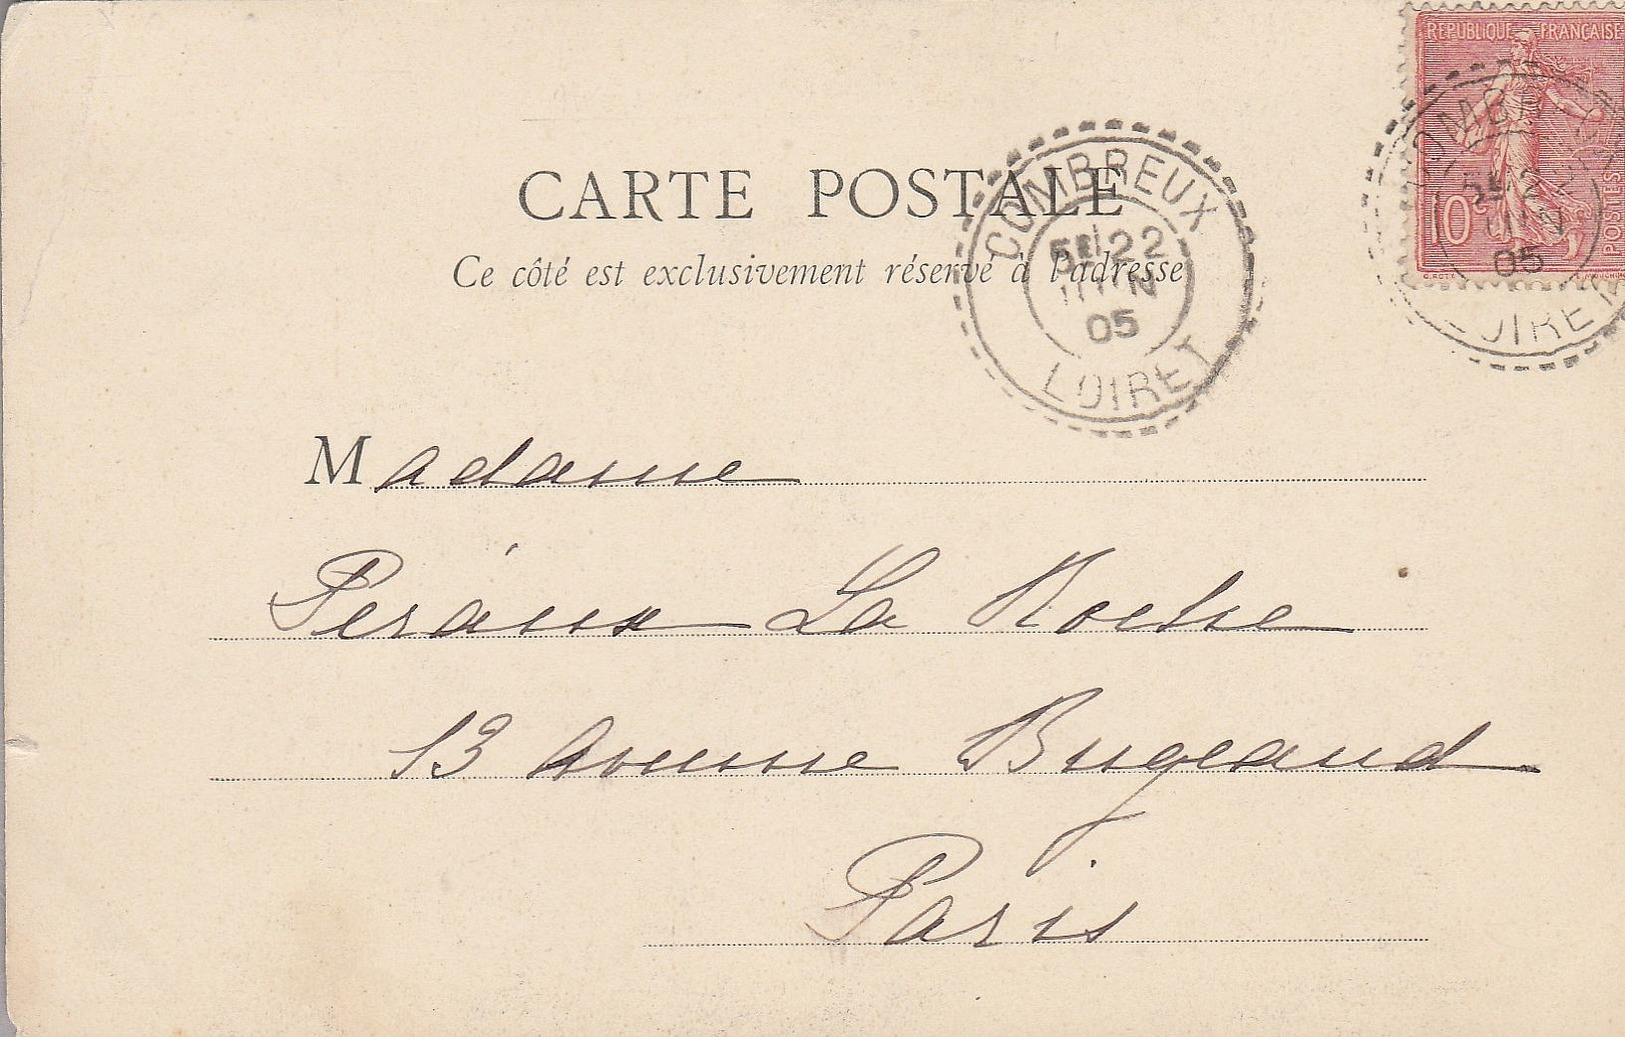 REPUBLIQUE FRANÇAISE
10c
POSTES
O. ROTY
COMBREUX
5E 22
JUIN
05
LOIRET
CARTE POSTALE
Ce côté est exclusivement réservé à l'adresse
COMBREUX
5E 22
JUIN
05
LOIRET
Madame
Peráux La Roche
13 Avenue Bugeaud
Paris